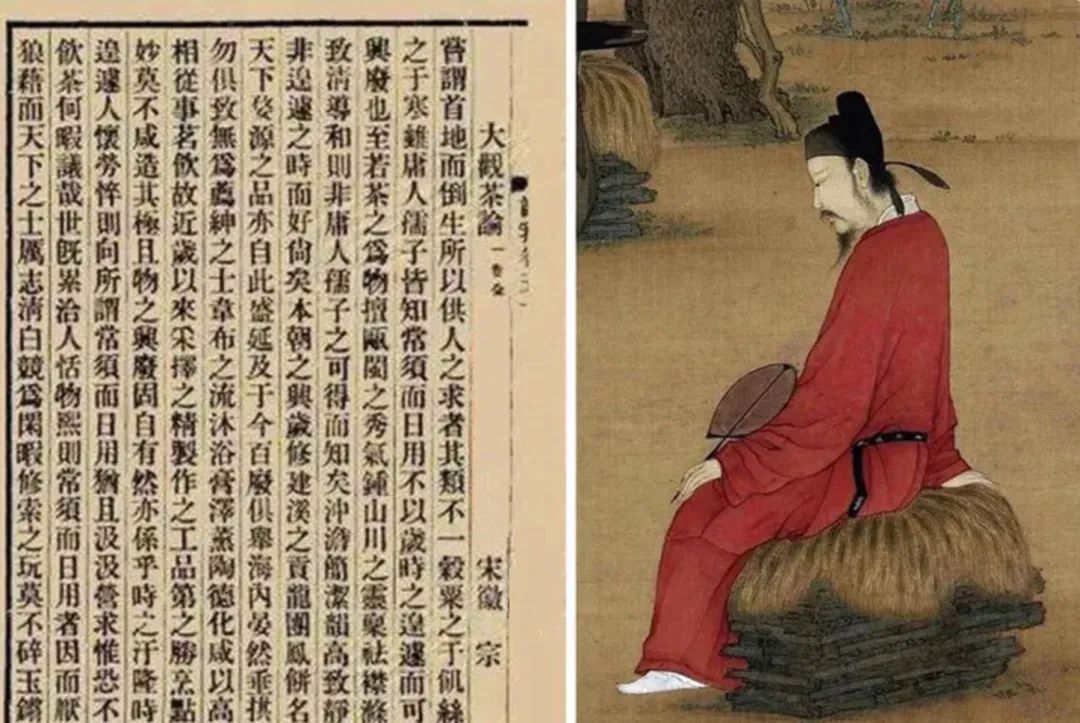 大觀茶論 一卷全 宋徽宗
嘗謂首地而倒生所以供人之求者其類不一穀粟之于飢絲
之于寒雖庸人孺子皆知常須而日用不以歲時之遑遽而可
興廢也至若茶之爲物擅甌閩之秀氣鍾山川之靈稟祛襟滌
致清導和則非庸人孺子之可得而知矣沖澹簡潔韻高致靜
非遑遽之時而好尙矣本朝之興歲修建溪之貢龍團鳳餅名
天下婺源之品亦自此盛延及于今百廢俱舉海內晏然垂拱
勿俱致無爲薦紳之士韋布之流沐浴膏澤薰陶德化咸以高
相從事茗飲故近歲以來采擇之精製作之工品第之勝烹點
妙莫不咸造其極且物之興廢固自有然亦係乎時之汙隆時
遑遽人懷勞悴則向所謂常須而日用猶且汲汲營求惟恐不
飲茶何暇議哉世旣累洽人恬物熙則常須而日用者因而厭
狼藉而天下之士厲志清白競爲閑暇修索之玩莫不碎玉鏘